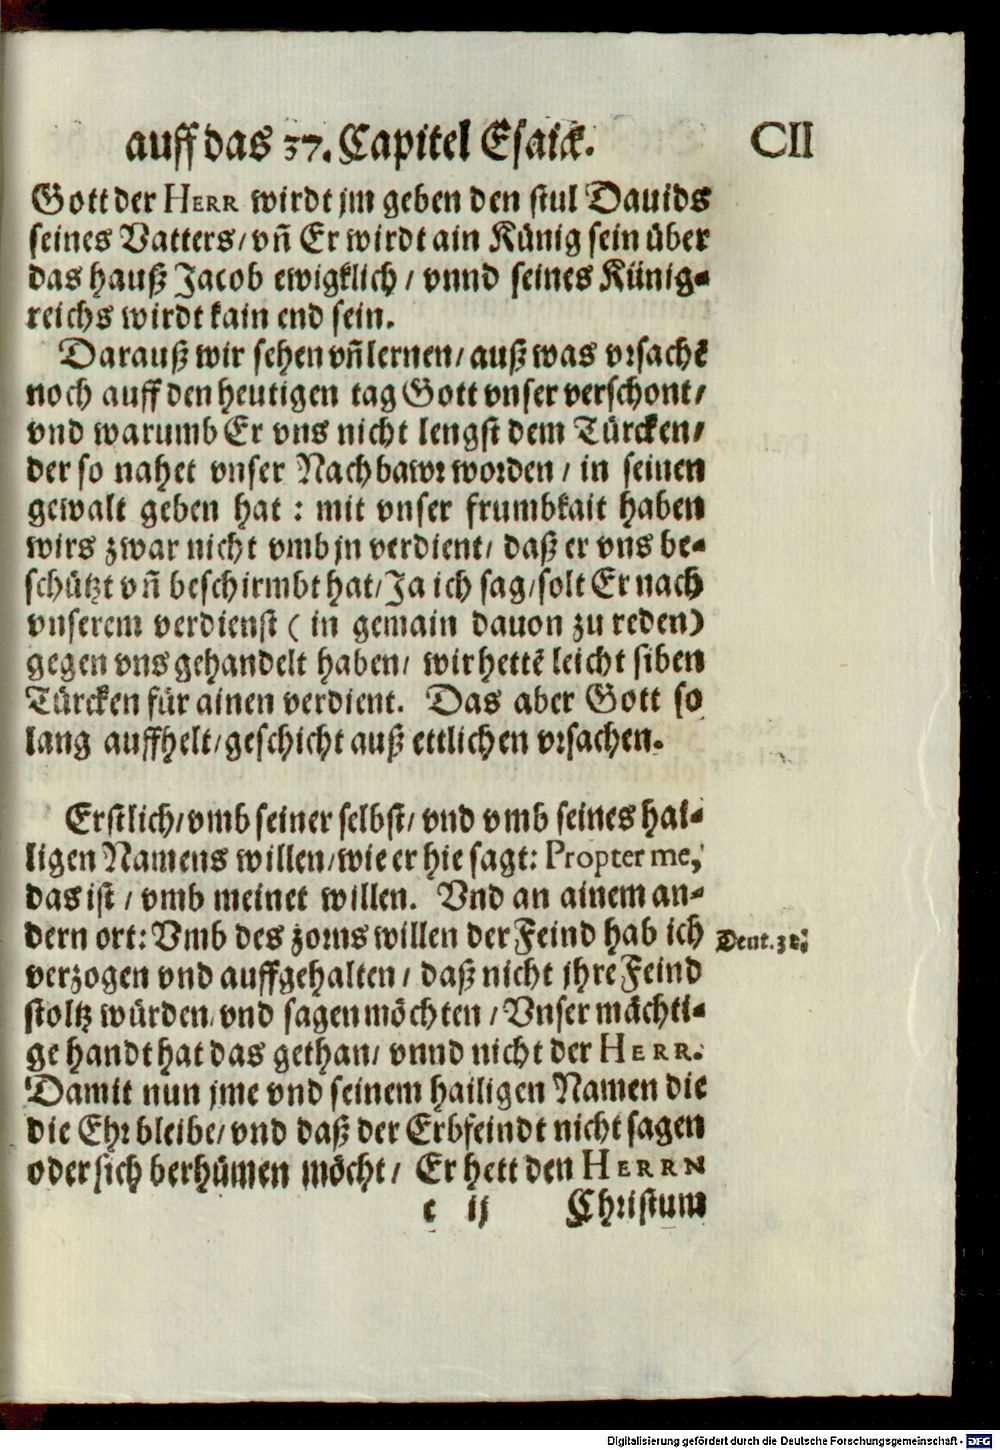 auff das 37. Capitel Esaiæ. CII
Gott der HERR wirdt jm geben den stul Dauids
seines Vatters/ vñ Er wirdt ain Künig sein über
das hauß Jacob ewigklich / vnnd seines Künig-
reichs wirdt kain end sein.
Darauß wir sehen vñ lernen/ auß was vrsachē
noch auff den heutigen tag Gott vnser verschont/
vnd warumb Er vns nicht lengst dem Türcken/
der so nahet vnser Nachbawr worden / in seinen
gewalt geben hat : mit vnser frumbkait haben
wirs zwar nicht vmb jn verdient/ daß er vns be-
schützt vñ beschirmbt hat/ Ja ich sag/ solt Er nach
vnserem verdienst ( in gemain dauon zu reden)
gegen vns gehandelt haben/ wir hettē leicht siben
Türcken für ainen verdient. Das aber Gott so
lang auffhelt/ geschicht auß ettlichen vrsachen.
Erstlich/ vmb seiner selbst/ vnd vmb seines hai-
ligen Namens willen/ wie er hie sagt: Propter me,
das ist / vmb meinet willen. Vnd an ainem an-
dern ort: Vmb des zorns willen der Feind hab ich
Deut. 32.
verzogen vnd auffgehalten / daß nicht jhre Feind
stoltz würden/ vnd sagen möchten / Vnser mächti-
ge handt hat das gethan/ vnnd nicht der HERR.
Damit nun jme vnd seinem hailigen Namen die
die Ehr bleibe/ vnd daß der Erbfeindt nicht sagen
oder sich berhümen möcht/ Er hett den HERRN
c ij Christum
Digitalisierung gefördert durch die Deutsche Forschungsgemeinschaft - DFG